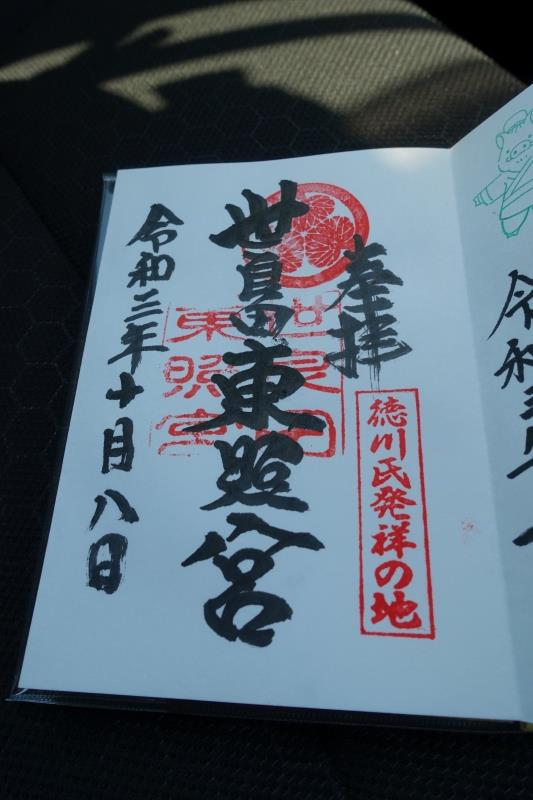 奉拝
徳川氏発祥の地
世良田東照宮
世良田
東照宮
令和三年十月八日
令和三年